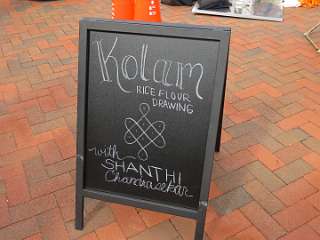 Kolam
RICE FLOUR
DRAWING
with
SHANTHI
Chandrasekar